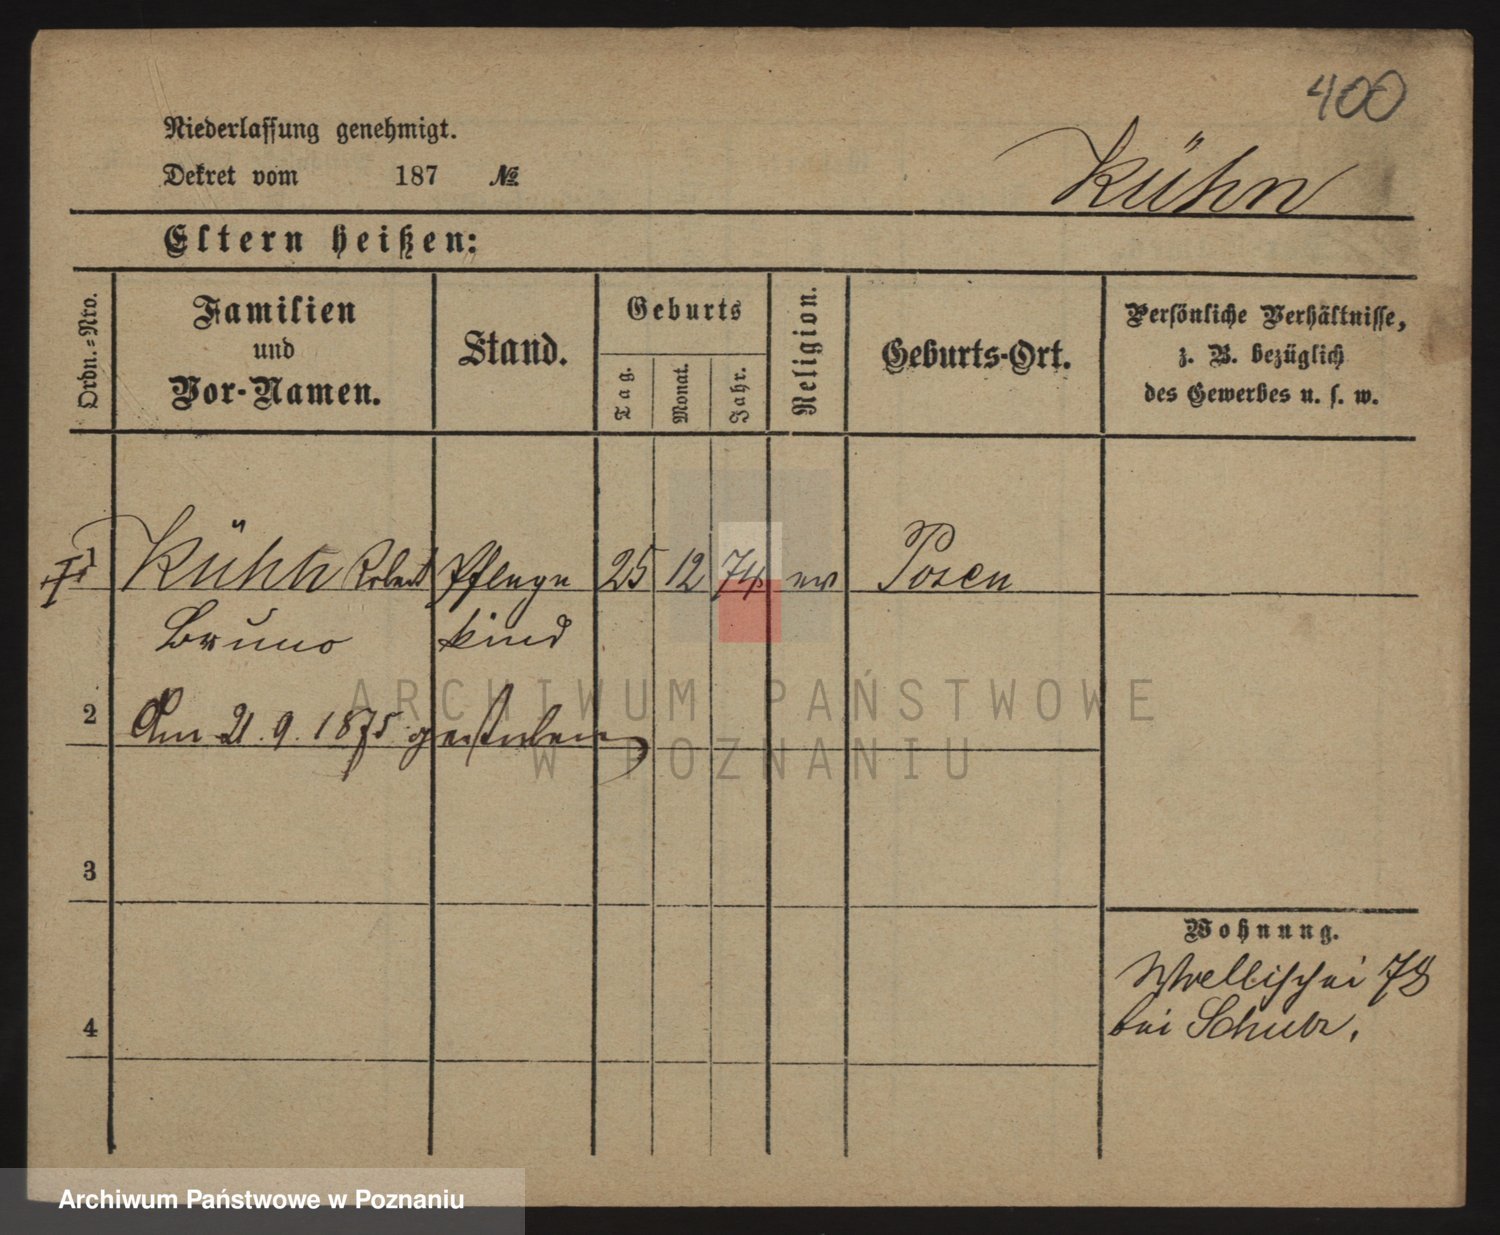 400
Niederlassung genehmigt.
Dekret vom 187 №
Kühn
Eltern heißen:
Ordn.-Nro.
Familien
und
Vor-Namen.
Stand.
Geburts
Tag.
Monat.
Jahr.
Religion.
Geburts-Ort.
Persönliche Verhältnisse,
z. B. bezüglich
des Gewerbes u. s. w.
1 Kühn Robert Pflege 25 12 74 ev Posen
Bruno kind
2 Am 21.9.1875 gestorben
3
4
Wohnung.
Wallischei 78
bei Schulz.
ARCHIWUM PAŃSTWOWE
W POZNANIU
Archiwum Państwowe w Poznaniu